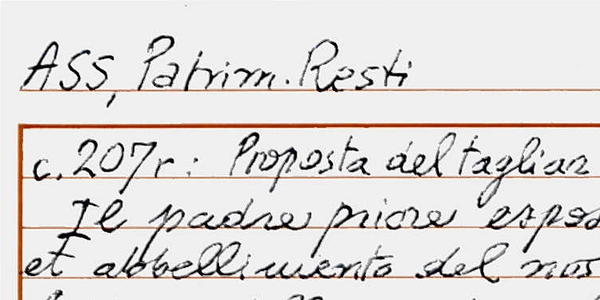 ASS, Patrim. Resti
c. 207r: Proposta del tagliar
Il padre priore espos
et abbellimento del nos